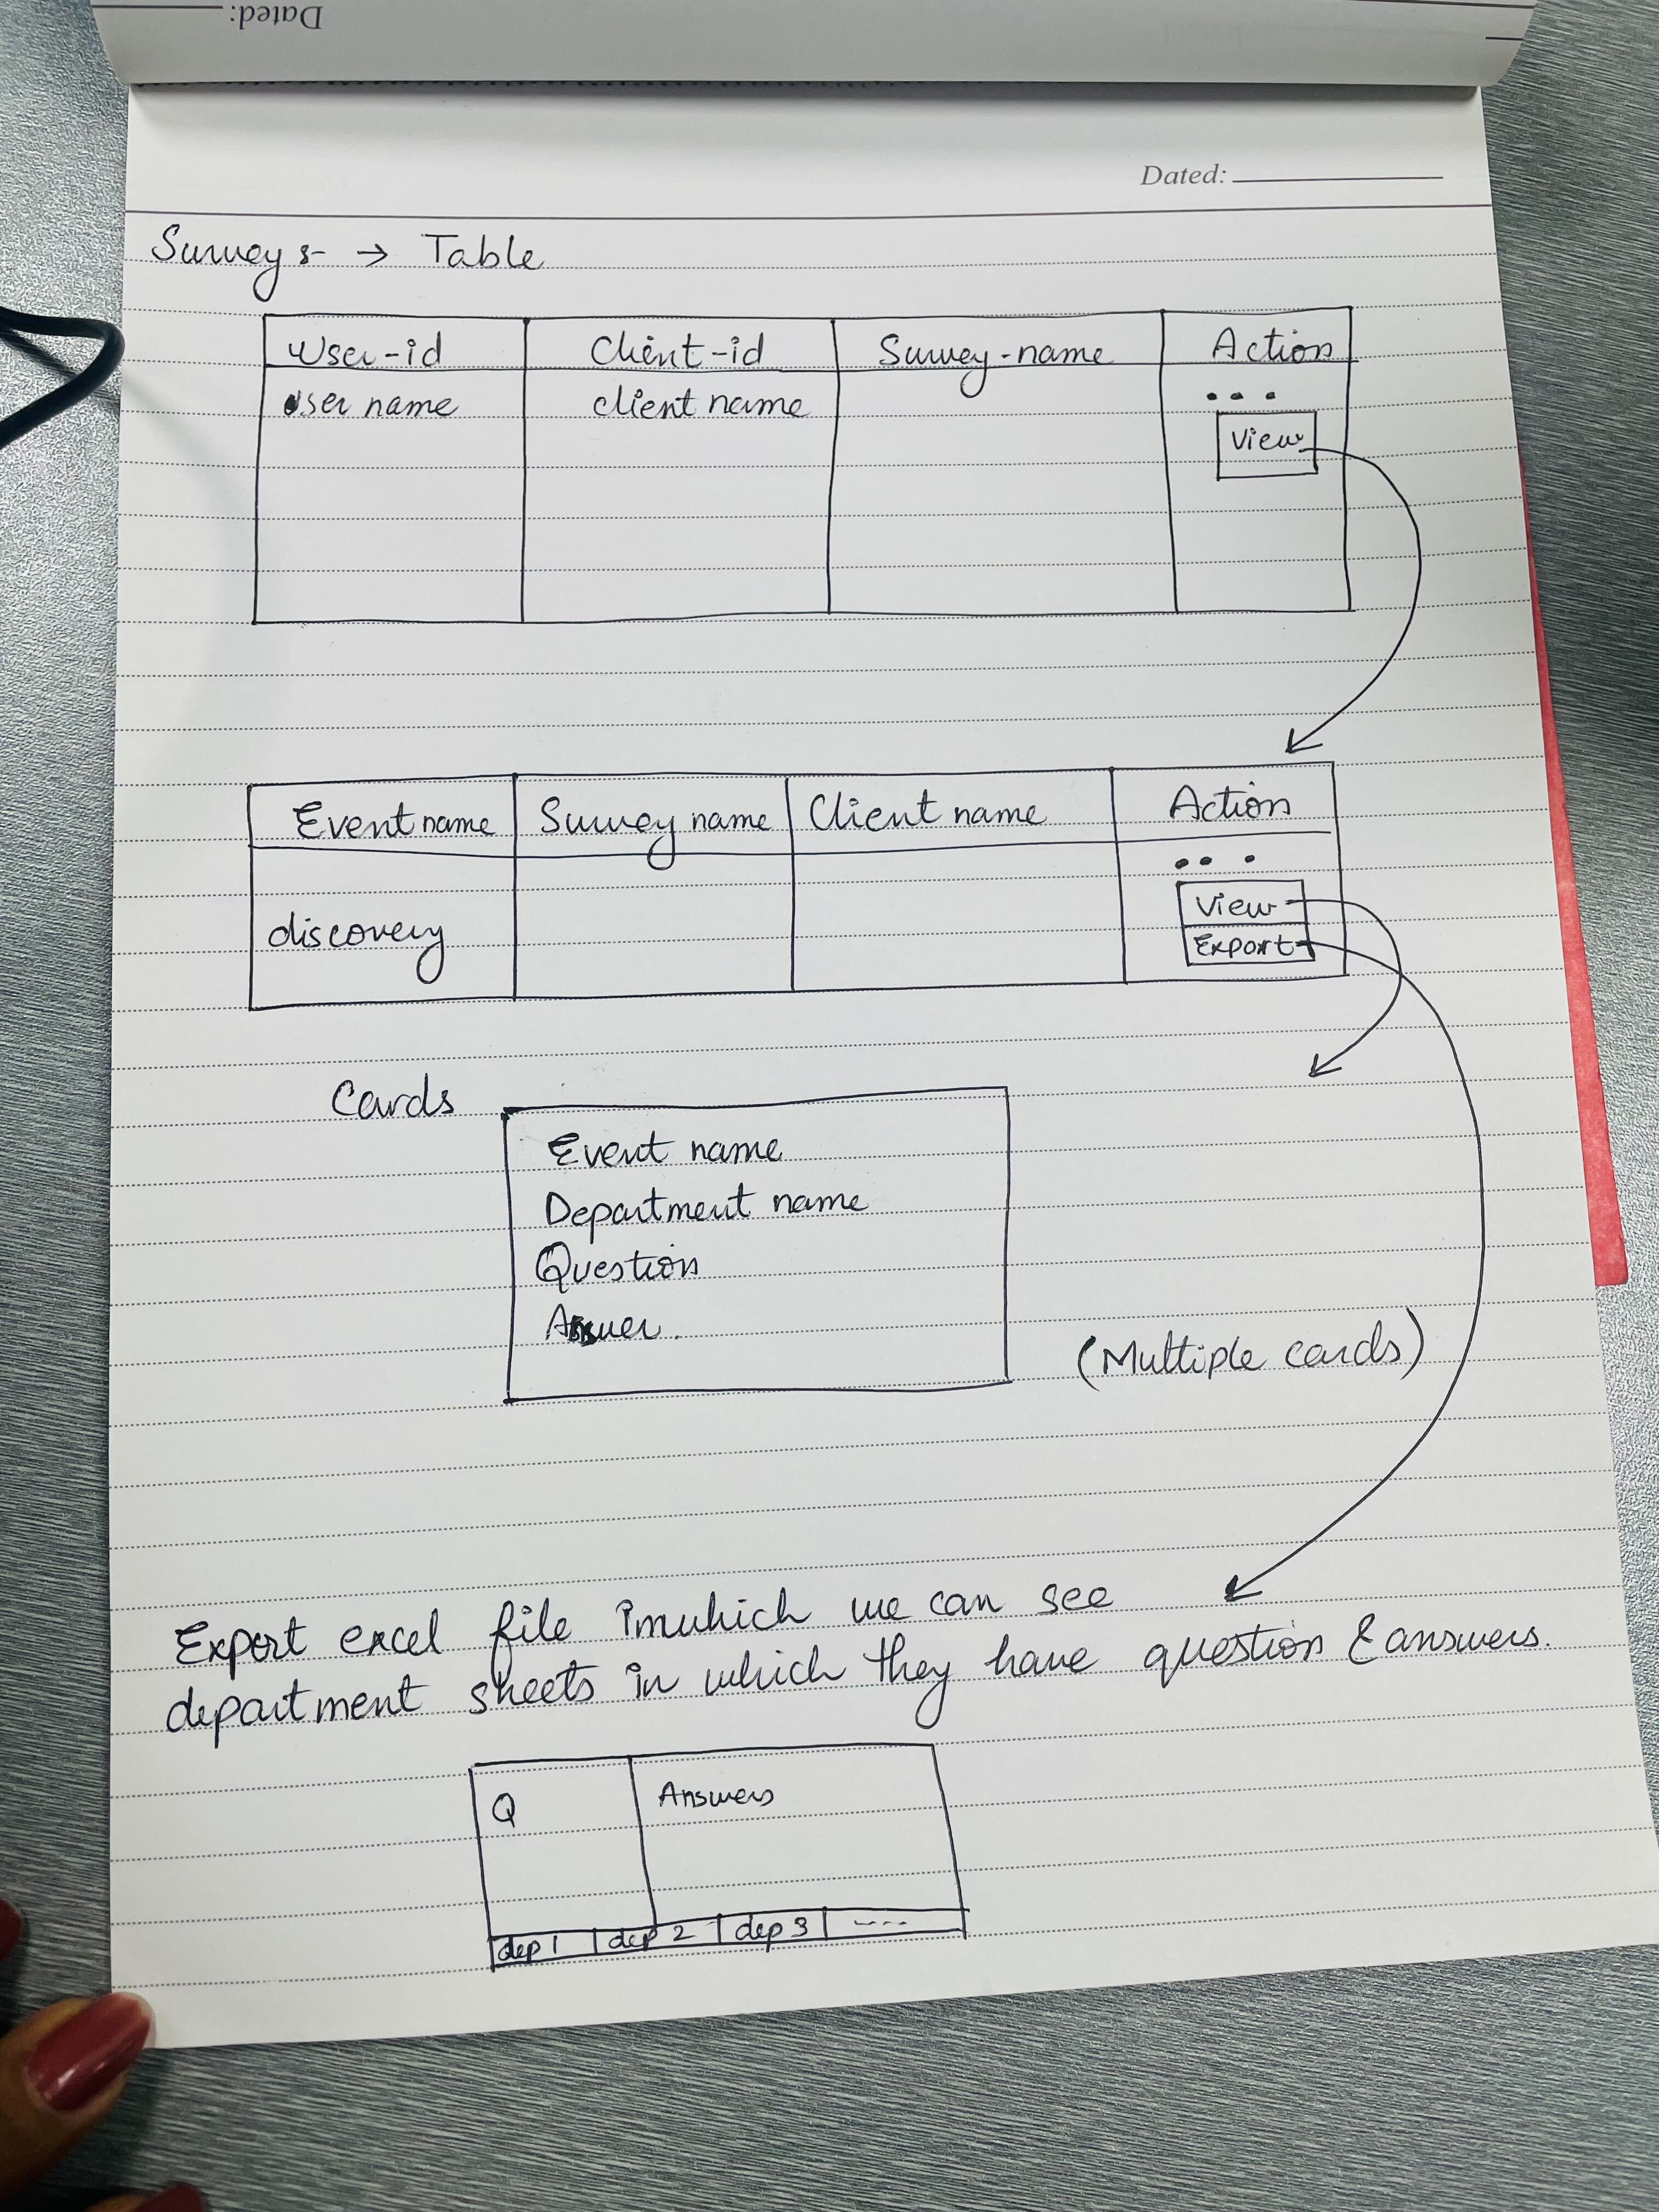 Dated:
Dated:
Surveys → Table
User-id Client-id Survey-name Action
user name client name • • •
View
Event name Survey name Client name Action
• • •
View
discovery
Export
Cards
Event name
Department name
Question
Answer.
(Multiple cards)
Export excel file inwhich we can see
department sheets in which they have question & answers.
Q Answers
dep 1 dep 2 dep 3 ----